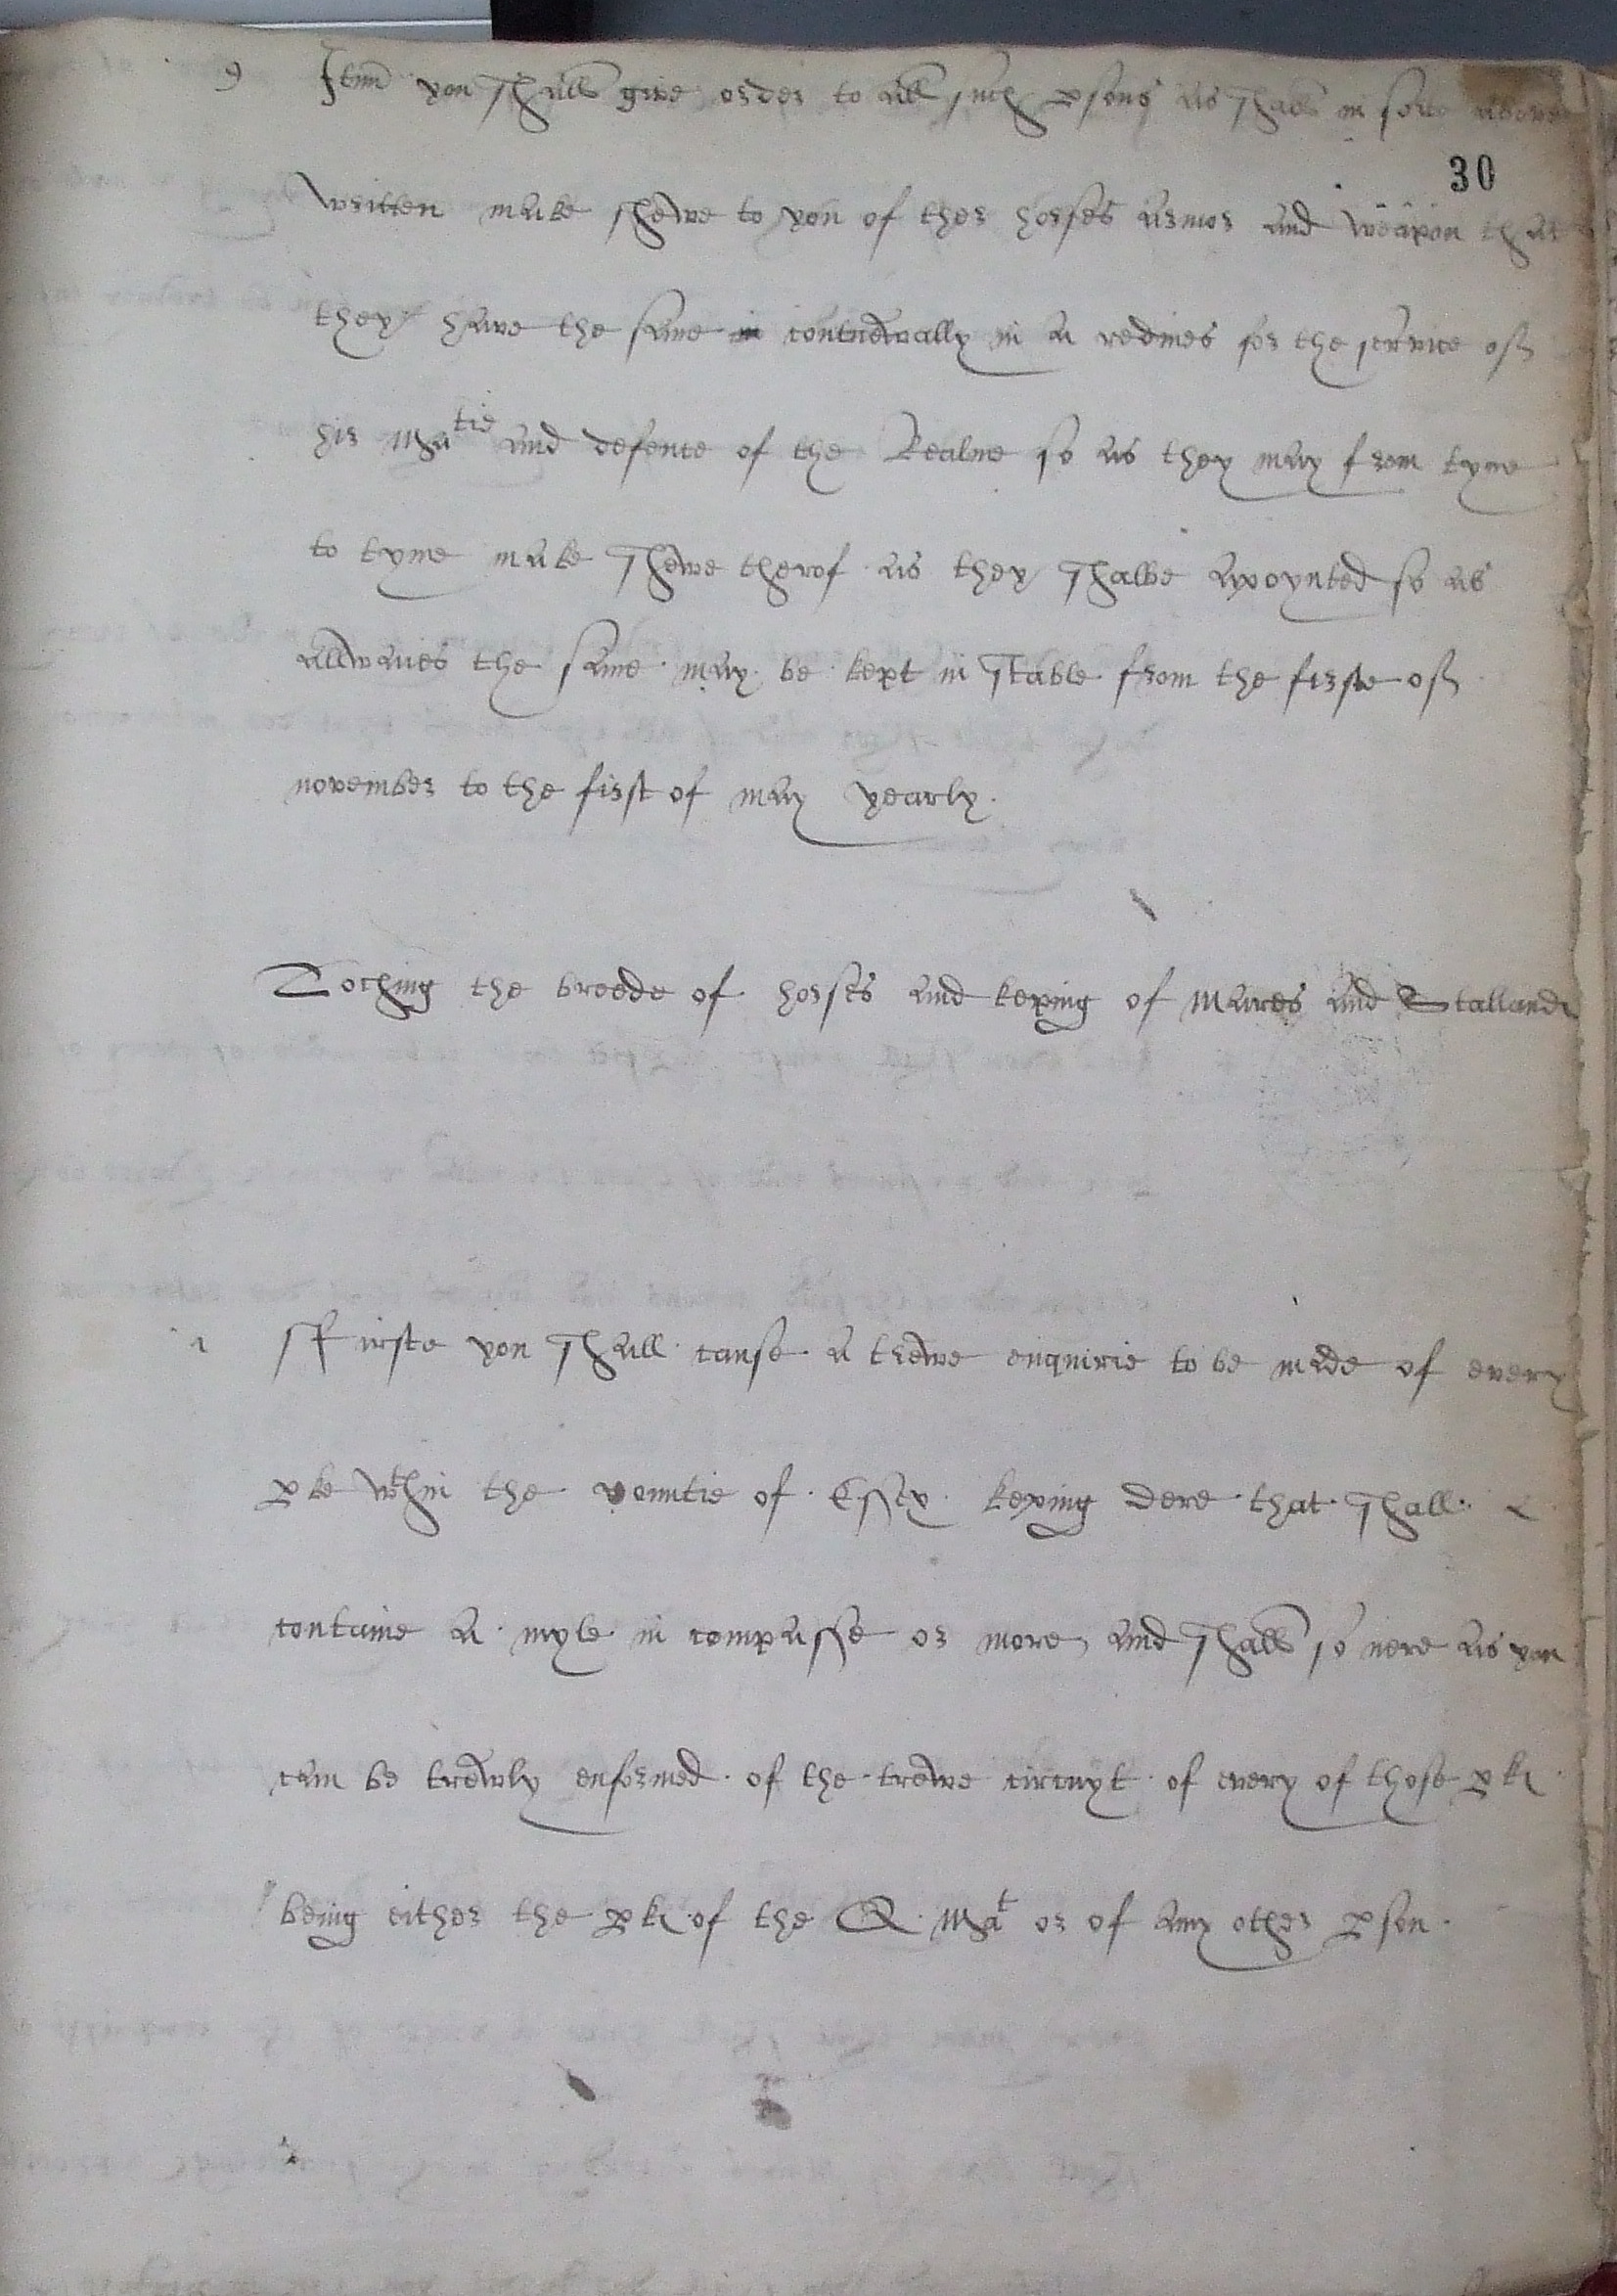 9 Itm̃ you shall give order to all such psons as shall in forme above
30
written make shewe to you of ther horses armor and weapon that
they have the same in contnewally in a redines for the service of
his Ma^tie and defence of the Realme so as they may from tyme
to tyme make shewe therof as they shalbe apoynted so as
allwaies the same may be kept in stable from the firste of
november to the first of may yearly.
Toching the breede of horses and keping of Mares and Stallands
1 ffirste you shall cause a trewe enquirie to be made of every
pke w^thin the countie of Essex keping dere that shall
containe a myle in compasse or more, and shall so nere as you
can be trewly enformed of the trewe circuyt of every of those pks
being either the pks of the Q. Ma^t or of any other pson.